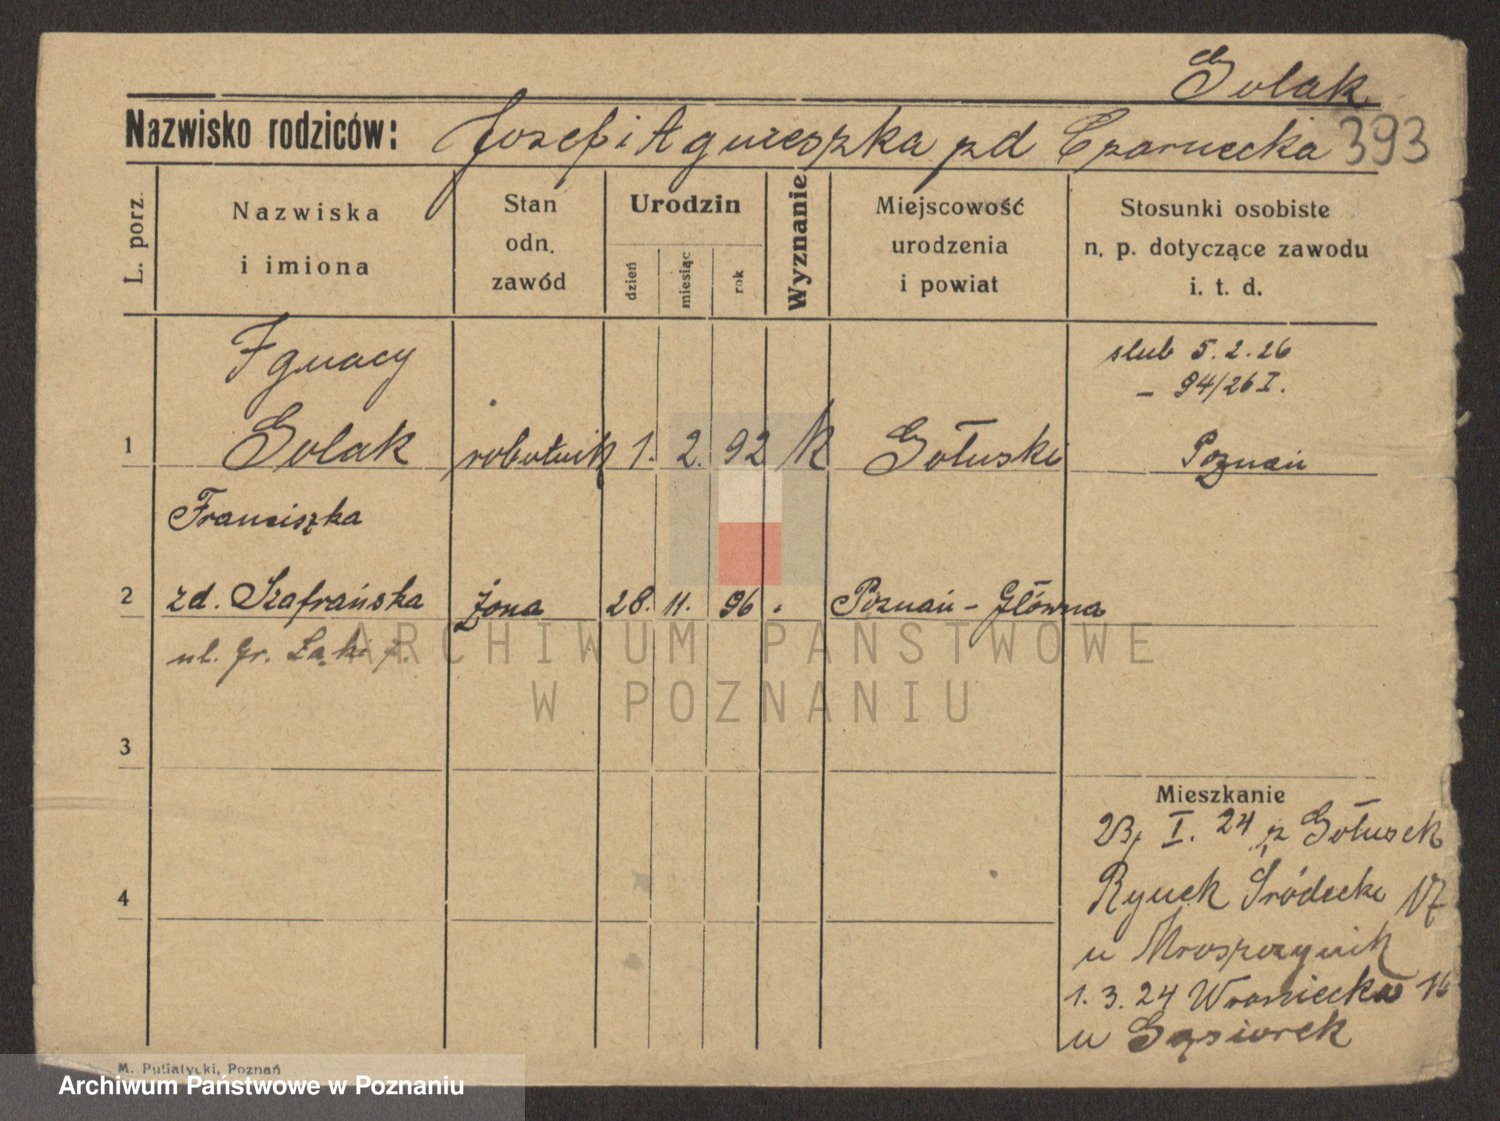 Solak
Nazwisko rodziców: Józef i Agnieszka zd Czarnecka 393
L. porz.
Nazwiska
i imiona
Stan
odn.
zawód
Urodzin
dzień
miesiąc
rok
Wyznanie
Miejscowość
urodzenia
i powiat
Stosunki osobiste
n. p. dotyczące zawodu
i. t. d.
Ignacy
ślub 5.2.26
- 94/26 I.
1 Solak robotnik 1. 2. 92 K Gołuski Poznań
Franciszka
2 zd. Szafrańska żona 28. 11. 96 Poznań - Główna
ul. Gr.
3
Mieszkanie
23, I. 24 z Gołusek
4
Rynek Śródecki 17
u
1.3.24 Wroniecka 16
u Gąsiorek
M. Putiatycki, Poznań
ARCHIWUM PAŃSTWOWE
W POZNANIU
Archiwum Państwowe w Poznaniu